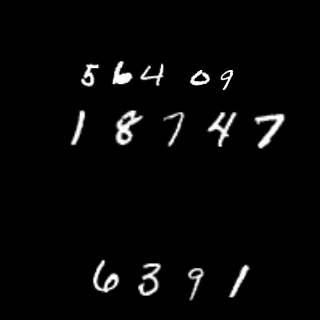 56409
18747
6391